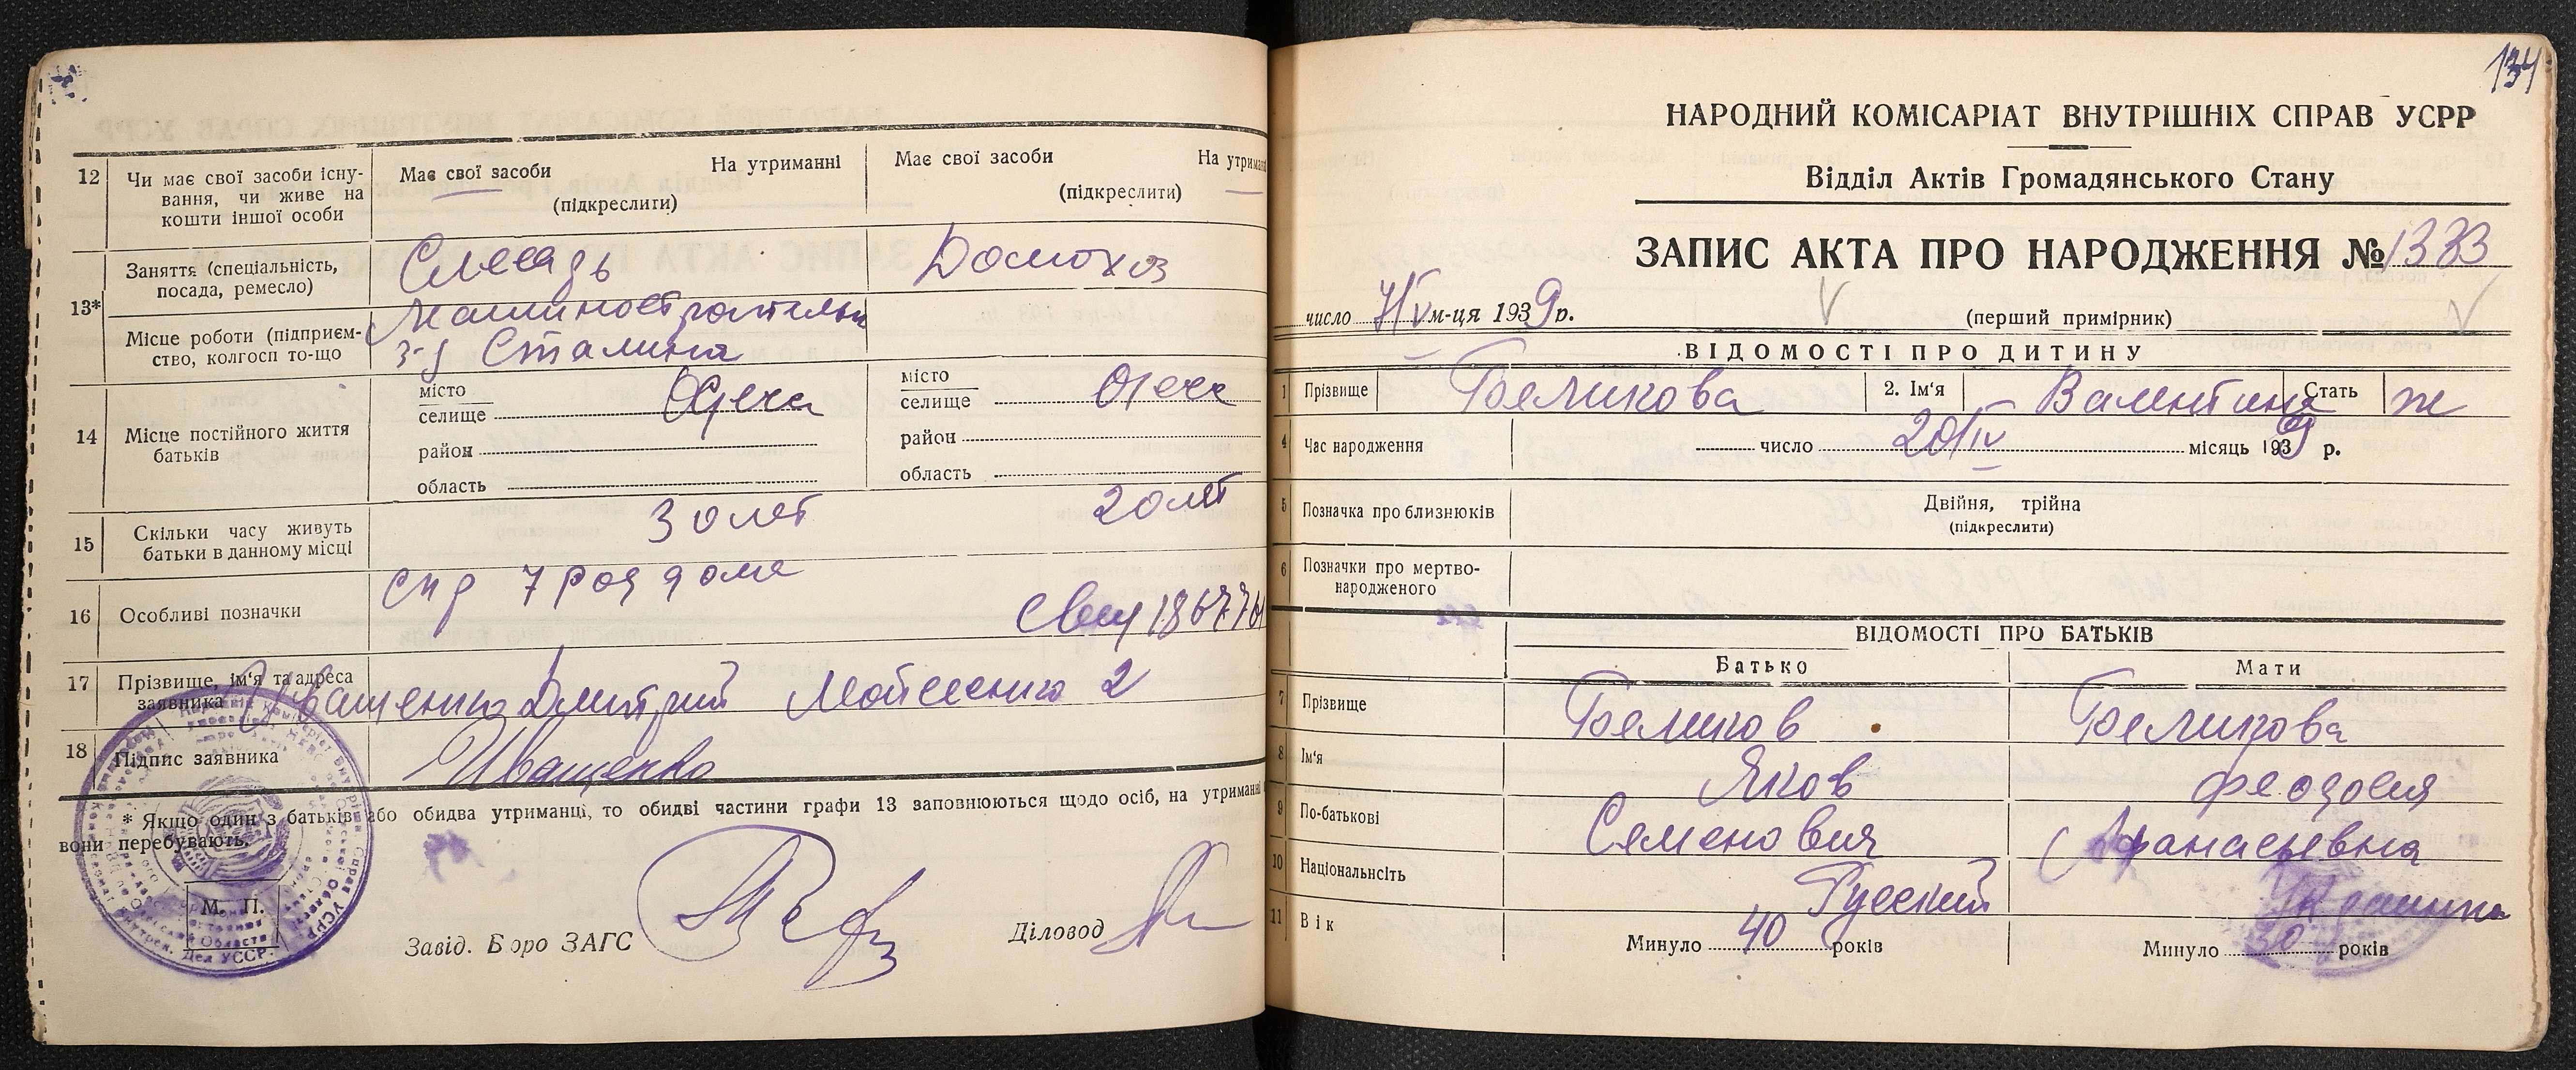 12 Чи має свої засоби існування, чи живе на кошти іншої особи
Має свої засоби На утриманні
(підкреслити)
Має свої засоби На утриман
(підкреслити)
13* Заняття (спеціальність, посада, ремесло)
Слесарь
Домохоз
Місце роботи (підприємство, колгосп то-що
Машиностроительн
з-д Сталина
14 Місце постійного життя батьків
місто
селище Одеса
район
область
місто
селище Одеса
район
область
15 Скільки часу живуть батьки в данному місці
30 лет
20 лет
16 Особливі позначки
спр 7 род дома
17 Прізвище, ім'я та адреса заявника
Иващенко Дмитрий
18 Підпис заявника
Иващенко
* Якщо один з батьків або обидва утриманці, то обидві частини графи 13 заповнюються щодо осіб, на утриманні
вони перебувають.
М. П.
Завід. Бюро ЗАГС
Діловод
134
НАРОДНИЙ КОМІСАРІАТ ВНУТРІШНІХ СПРАВ УСРР
Відділ Актів Громадянського Стану
ЗАПИС АКТА ПРО НАРОДЖЕННЯ № 1333
число 7/V м-ця 1939 р.
(перший примірник)
ВІДОМОСТІ ПРО ДИТИНУ
1 Прізвище Беликова 2. Ім'я Валентина Стать ж
4 Час народження число 20/IV місяць 1939 р.
5 Позначка про близнюків Двійня, трійна
(підкреслити)
6 Позначки про мертвонародженого
ВІДОМОСТІ ПРО БАТЬКІВ
Батько Мати
7 Прізвище Беликов Беликова
8 Ім'я Яков Феодосия
9 По-батькові Семенович Афанасьевна
10 Національнсіть Русский Украинка
11 Вік Минуло 40 років Минуло 30 років